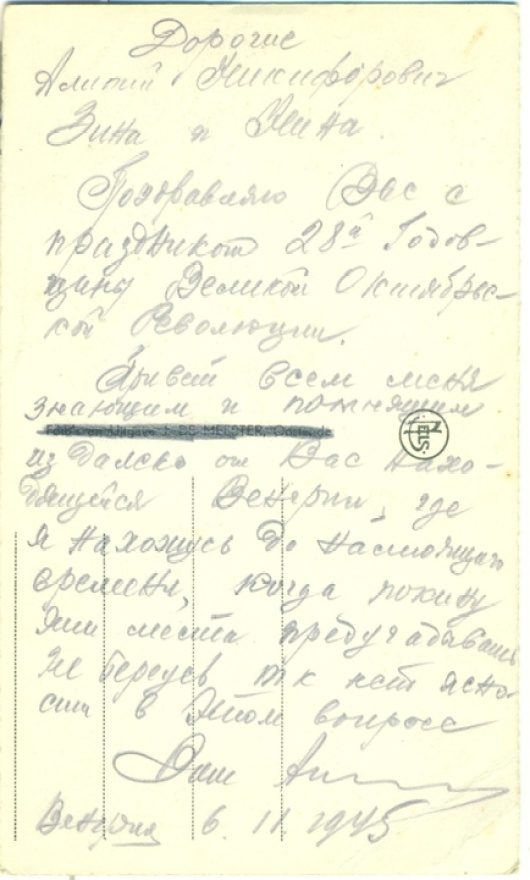 Дорогие
Алипий Никифорович
Зина и Нина.
Поздравляю Вас с
праздником 28й Годов-
щины Великой Октябрьс-
кой Революции.
Привет всем меня
знающим и помнящим
DE MEESTER,
NELS
из далеко от Вас нахо-
дящейся Венгрии, где
я нахожусь до настоящего
времени, когда покину
эти места предугадывать
не берусь т к нет ясно-
сти в этом вопросе
Ваш
Венгрия 6. 11 1945